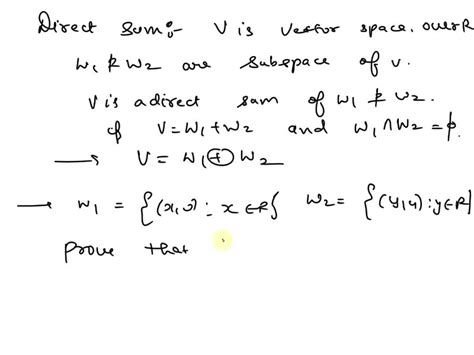 Direct Sum:- V is vector space. over R
W1 & W2 are subspace of v.
V is a direct sum of W1 & W2.
if V = W1 + W2 and W1 ∩ W2 = ϕ.
→ V = W1 ⊕ W2
→ W1 = {(x,0) : x ∈ R} W2 = {(y,y) : y ∈ R}
prove that